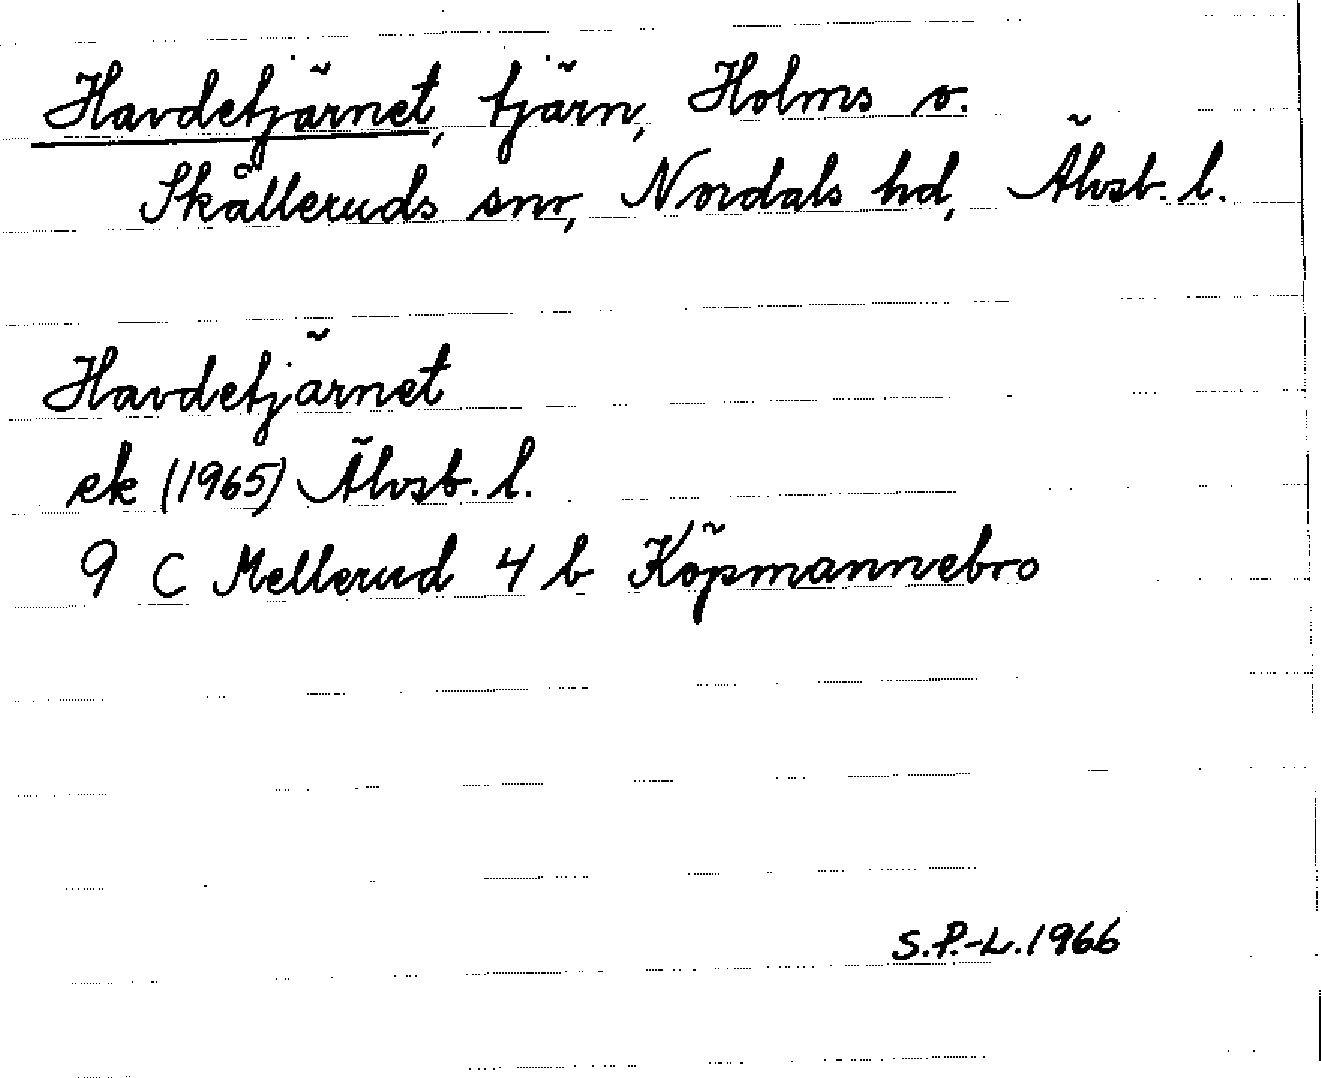 Havdetjärnet, tjärn, Holms o.
Skålleruds snr, Nordals hd, Älvsb. l.
Havdetjärnet
ek (1965) Älvsb. l.
9 C Mellerud 4 b Köpmannebro
S.P.-L. 1966